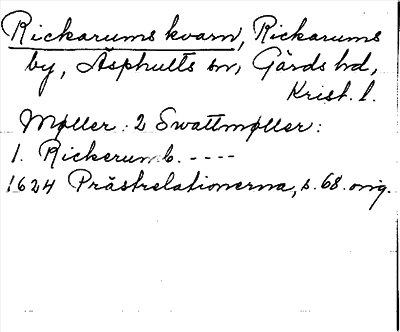 Rickarums kvarn, Rickarums
by, Äsphults sn, Gärds hd,
Krist. l.
Møller: 2 Swattmøller:
1. Rickerum 6. ----
1624 Prästrelationerna, s. 68. orig.